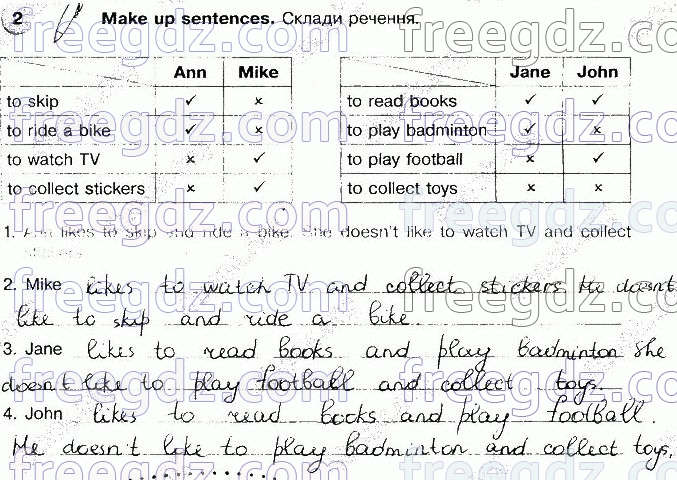 2 Make up sentences. Склади речення.
Ann Mike
to skip ✓ ×
to ride a bike ✓ ×
to watch TV × ✓
to collect stickers × ✓
Jane John
to read books ✓ ✓
to play badminton ✓ ×
to play football × ✓
to collect toys × ×
1. Ann likes to skip and ride a bike. She doesn't like to watch TV and collect
stickers.
2. Mike likes to watch TV and collect stickers. He doesn't
like to skip and ride a bike.
3. Jane likes to read books and play badminton She
doesn't like to play football and collect toys.
4. John likes to read books and play football.
He doesn't like to play badminton and collect toys.
freegdz.com